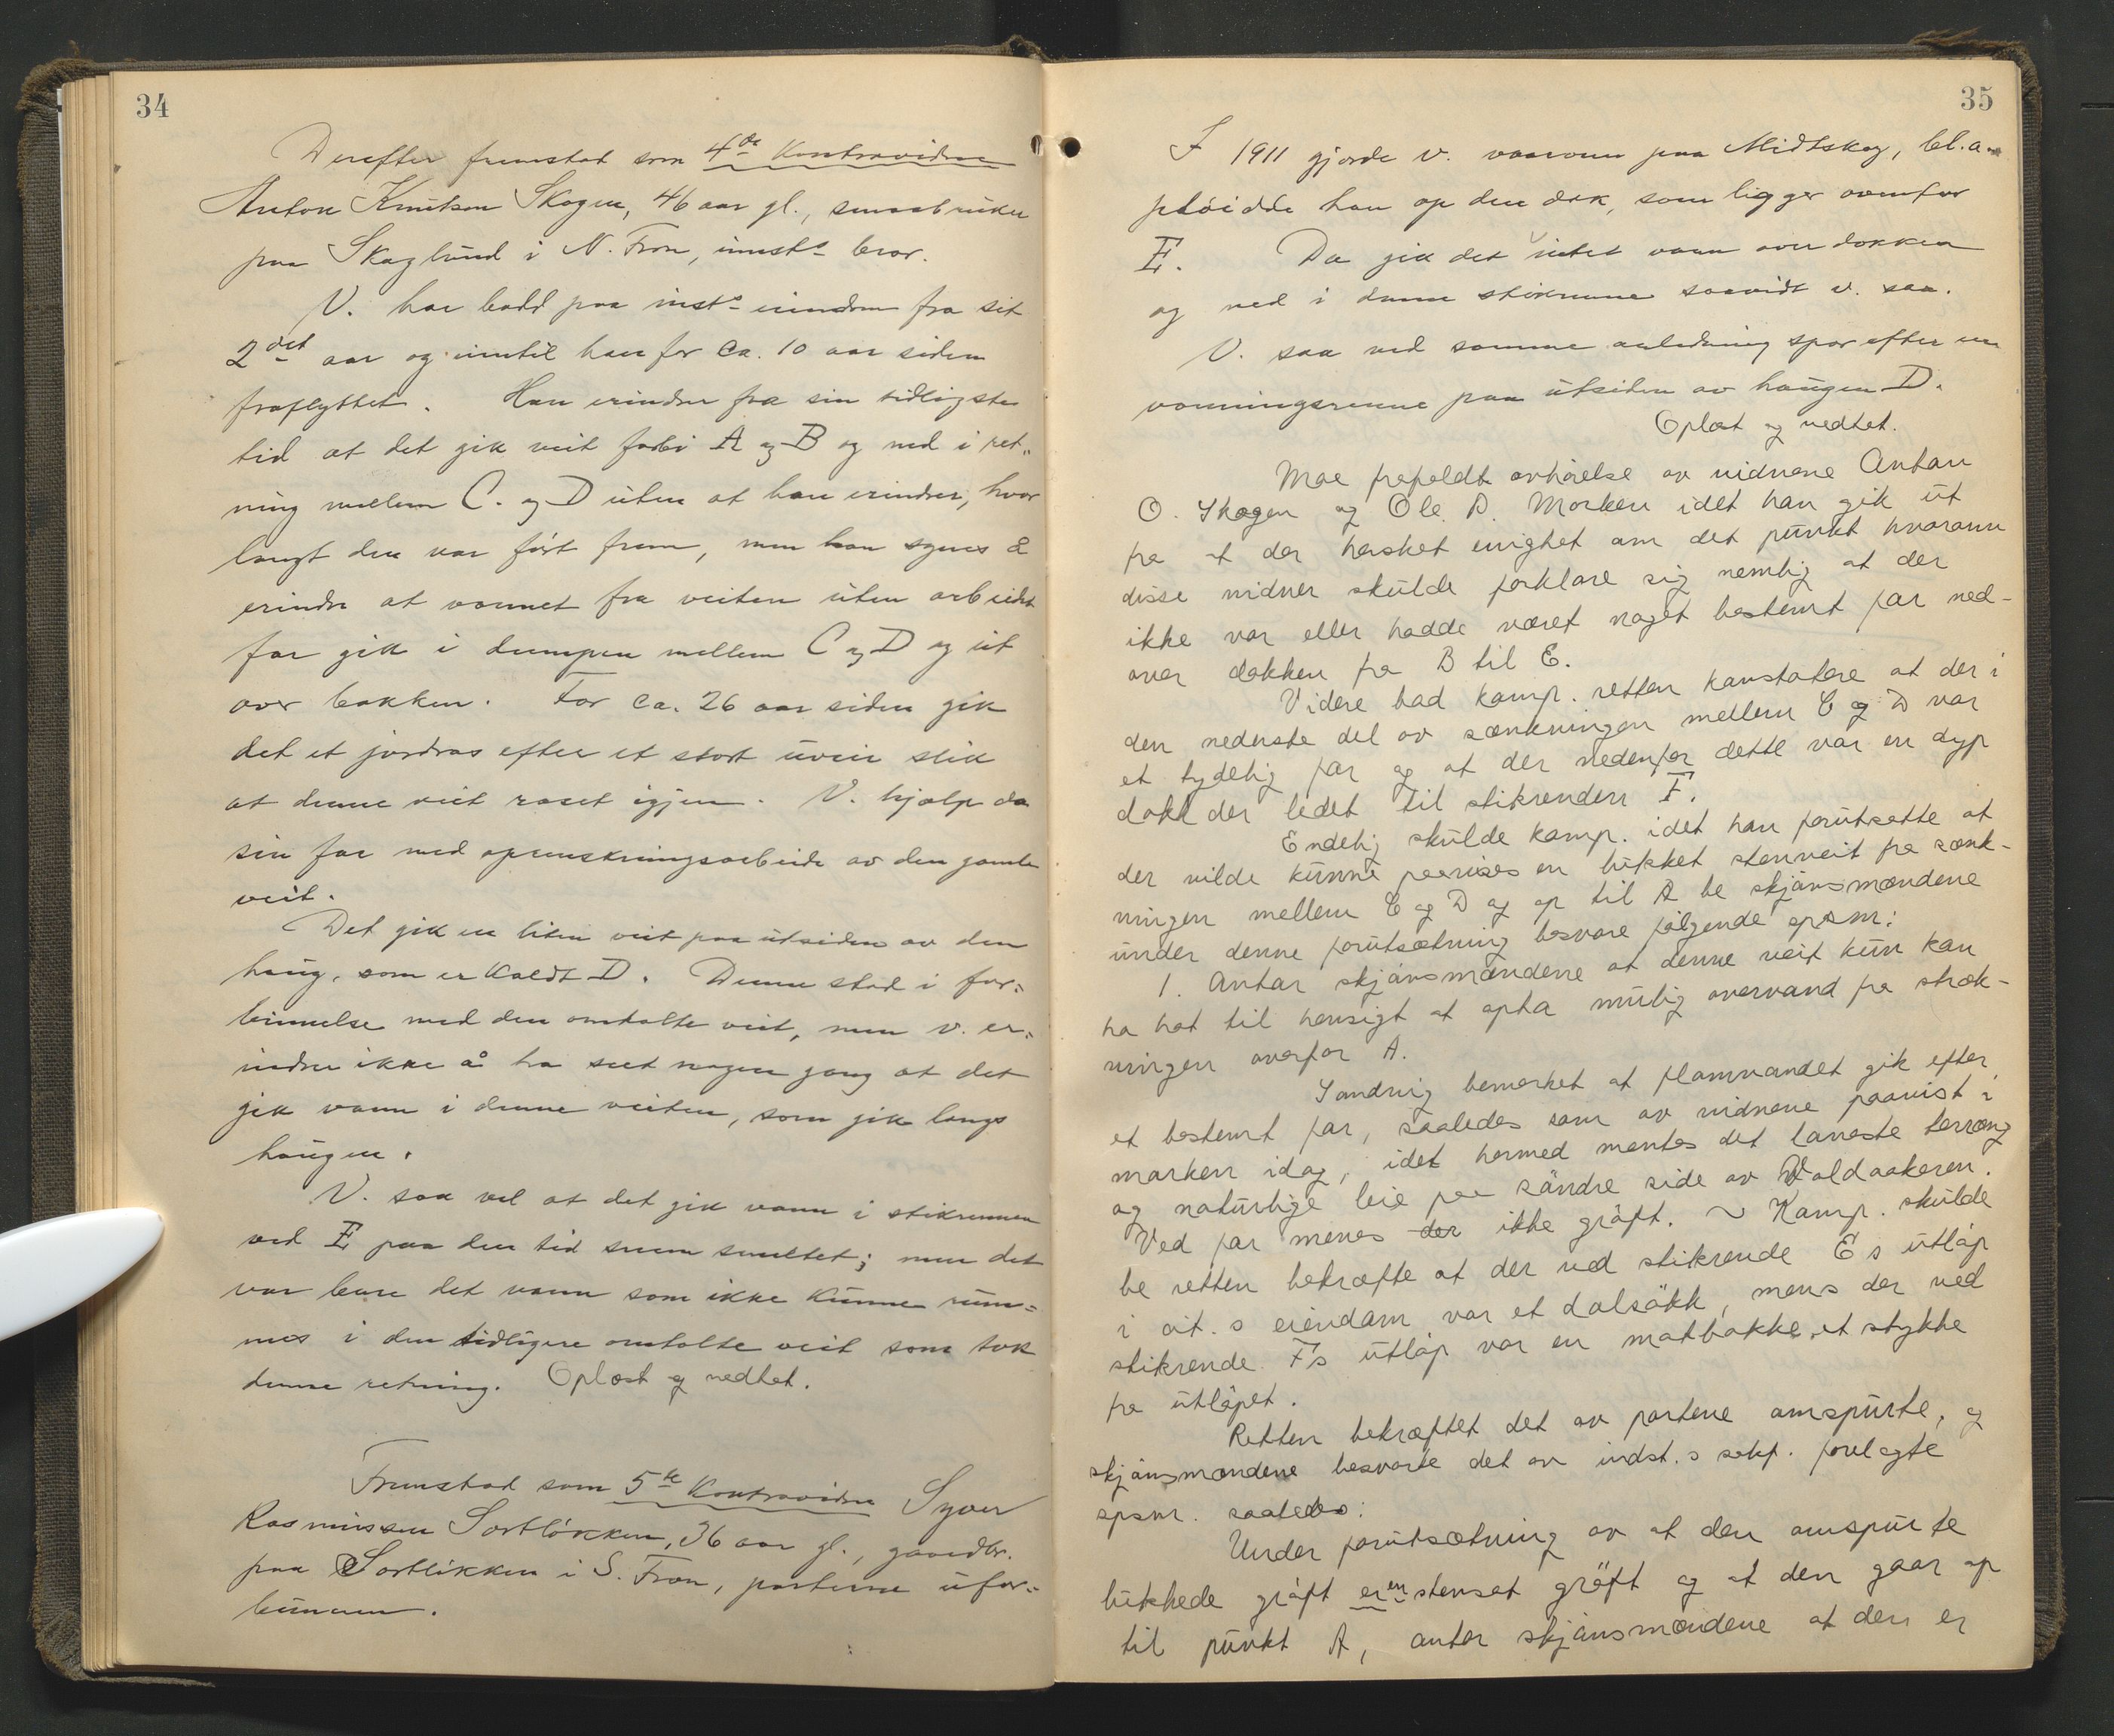 34
Derefter fremstod som 4de Kontravidne
Anton Knutsen Skogen, 46 aar gl., smaabruker
paa Skoglund i N. Fron, innsts bror.
V. har bodd paa insts eiendom fra sit
2det aar og inntil han for ca. 10 aar siden
fraflyttet. Han erindrer fra sin tidligste
tid at det gik veit forbi A og B og ned i ret„
ning mellem C. og D uten at han erindrer, hvor
langt den var ført frem, men han synes å
erindre at vannet fra veiten uten arbeidet
far gik i dumpen mellem C og D og ut
over bakken. For ca. 26 aar siden gik
det et jordras efter et stort uveir slik
at denne veit raset igjen. V. hjalp da
sin far med oprenskningsarbeide av den gamle
veit.
Det gik en liten veit paa utsiden av den
haug, som er kaldt D. Denne stod i for=
binnelse med den omtalte veit, men v. er=
indrer ikke å ha seet nogen gang at det
gik vann i denne veiten, som gik langs
haugen.
V. saa vel at det gik vann i stikrennen
ved E paa den tid sneen smeltet; men det
var bare det vann som ikke kunne rum=
mes i den tidligere omtalte veit som tok
denne retning. Oplæst og vedtat.
Fremstod som 5te Kontravidne Syver
Rasmussen Sortløkken, 36 aar gl., gaardbr.
paa Sortløkken i S. Fron, parterne ufor=
bunnen.
35
I 1911 gjorde v. vaaronn paa Midtskog, bl.a.
pløidde han op den dok, som ligger ovenfor
E. Da gik det intet vann over dokken
og ned i denne stikrenne saavidt v. saa.
V. saa ved samme anledning spor efter en
vanningsrenne paa utsiden av haugen D.
Oplæst og vedtat.
Moe frafaldt avhørelse av vidnene Anton
O. Skogen og Ole D. Morken idet han gik ut
fra at der hersket enighet om det punkt hvorom
disse vidner skulde forklare sig nemlig at der
ikke var eller hadde været noget bestemt far ned-
over dokken fra B til E.
Videre bad kamp. retten konstatere at der i
den nederste del av sænkningen mellem C og D var
et tydelig far og at der nedenfor dette var en dyp
dokk der ledet til stikrenden F.
Endelig skulde kamp. idet han forutsatte at
der vilde kunne paavises en lukket stenveit fra sænk-
ningen mellem C og D og op til A be skjønsmændene
under denne forutsætning besvare følgende spsm:
1. Antar skjønsmændene at denne veit kun kan
ha hat til hensigt at opta mulig overvand fra stræk-
ningen ovenfor A.
Sandvig bemerket at flomvandet gik efter
et bestemt far, saaledes som av vidnene paavist i
marken idag, idet hermed mentes det laveste terræng
og naturlige leie paa søndre side av Voldaakeren.
Ved far menes der ikke grøft. ~ Kamp. skulde
be retten bekræfte at der ved stikrende E s utløp
i cit. s eiendom var et dalsøkk, mens der ved
stikrende F's utløp var en motbakke, et stykke
fra utløpet.
Retten bekræftet det av partene omspurte, og
skjønsmændene besvarte det av indst. s sakf. forelagte
spsm. saaledes:
Under forutsætning av at den omspurte
lukkede grøft er en stensat grøft og at den gaar op
til punkt A, antar skjønsmændene at den er